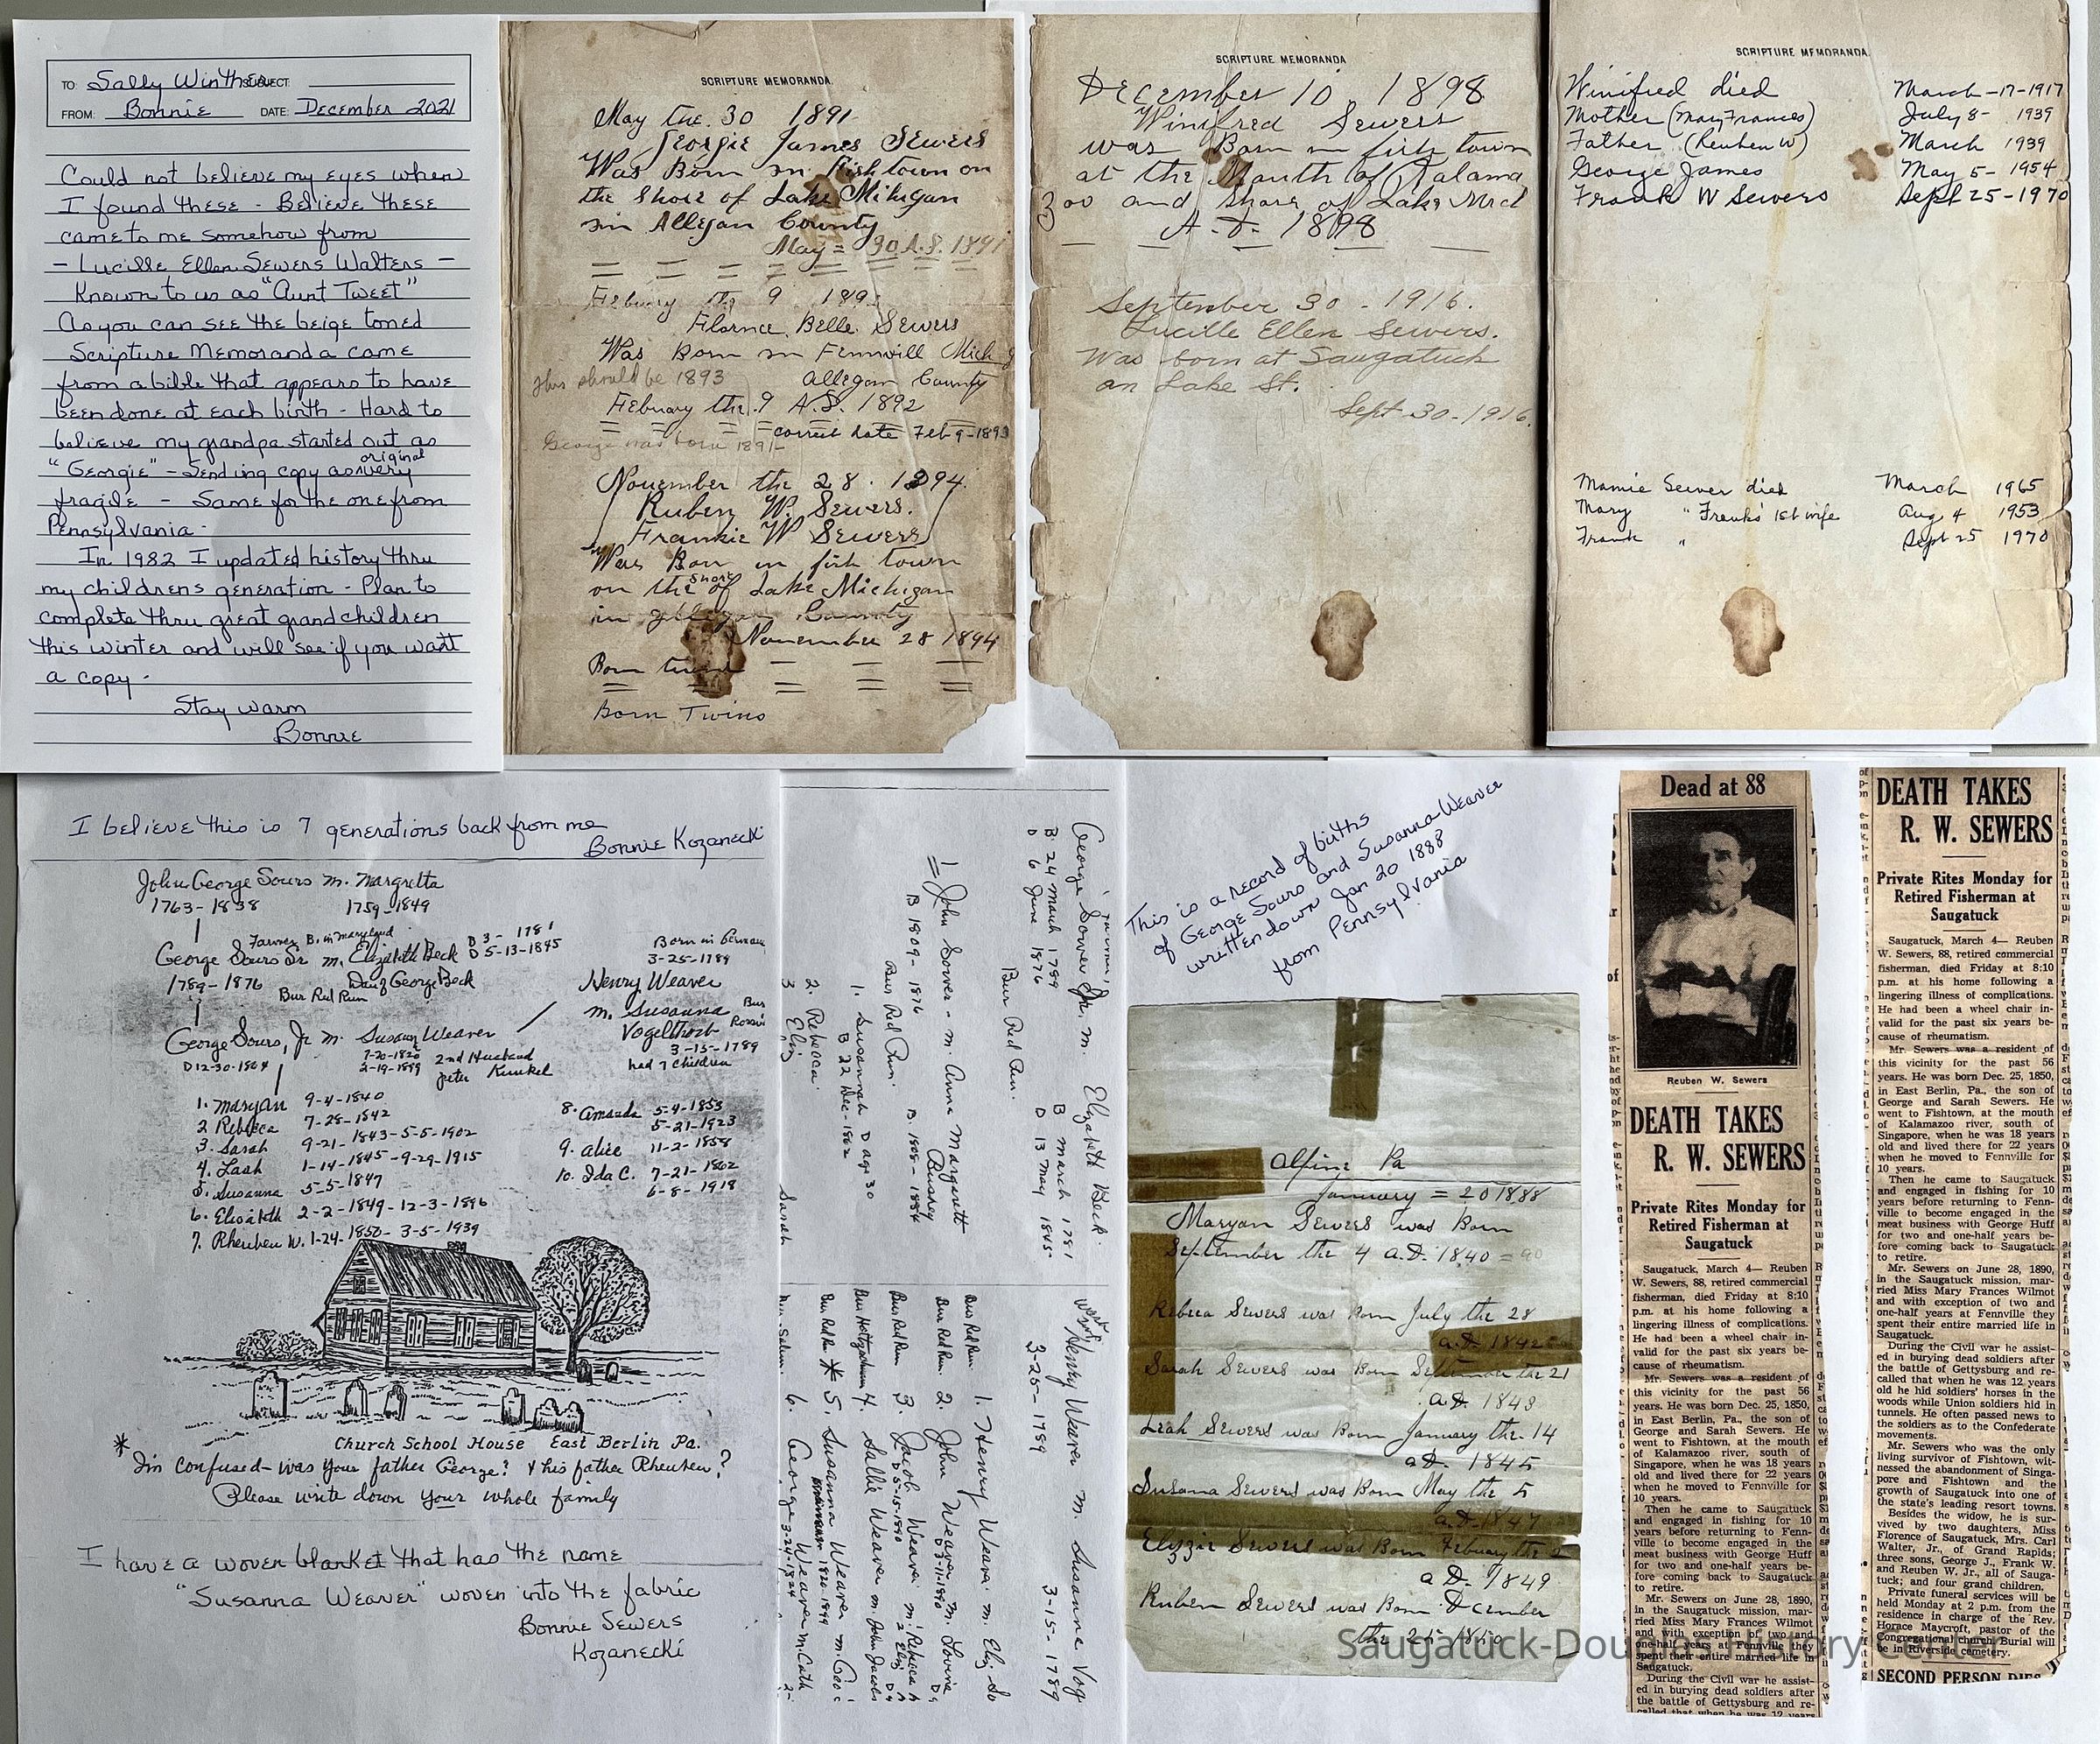 TO: Sally Winthers SUBJECT:
FROM: Bonnie DATE: December 2021
Could not believe my eyes when
I found these - Believe these
came to me somehow from
- Lucille Ellen Sewers Walters -
Known to us as "Aunt Tweet"
As you can see the beige toned
Scripture Memoranda came
from a bible that appears to have
been done at each birth - Hard to
believe my grandpa started out as
"Georgie" - Sending copy as original very
fragile - Same for the one from
Pennsylvania -
In 1982 I updated history thru
my childrens generation - Plan to
complete thru great grandchildren
this winter and will see if you want
a copy -
Stay warm
Bonnie
SCRIPTURE MEMORANDA.
May the. 30 1891
Georgie James Sewers
Was Born in Fishtown on
the Shore of Lake Michigan
in Allegan County
May = 30 A.D. 1891
Febuary the 9 189
Flornce Belle Sewers
Was Born in Fennvill Mich
this should be 1893 Allegan County
Febuary the. 9 A.D. 1892
correct date Feb-9-1893
George was born 1891-
November the 28. 1894.
Ruben W. Sewers.
Frankie W Sewers
Was Born in fish town
on the short of Lake Michigan
in Allegan County
November 28 1894
Born twins
Born Twins
SCRIPTURE MEMORANDA
December 10, 1898
Winifred Sewers
was Born in fish town
at the Mouth of Kalama
zoo and Shore of Lake Mich
A.D. 1898
September 30 - 1916.
Lucille Ellen Sewers.
Was born at Saugatuck
on Lake St.
Sept-30-1916.
SCRIPTURE MEMORANDA.
Winifred died March-17-1917
Mother (Mary Frances) July 8- 1939
Father (Reuben W) March 1939
George James May 5-1954
Frank W Sewers Sept 25-1970
Mamie Sewer died March 1965
Mary " Franks 1st wife Aug 4 1953
Frank " Sept 25 1970
I believe this is 7 generations back from me
Bonnie Kozanecki
John George Sours m. Margretta
1763-1838 1759-1849
Farmer B. in Maryland
George Sours Sr m. Elizabeth Beck B 3- 1781 D 5-13-1845
1789-1876 Dau of George Beck
Bur Red Run
Born in German
3-25-1789
Henry Weaver
m. Susanna Bur
Vogelthorb
3-15-1789
had 7 children
George Sours, Jr m. Susan Weaver
D 12-30-1864 7-20-1820 2nd Husband
2-19-1899 Peter Kunkel
1. Maryan 9-4-1840
2 Rebecca 7-28-1842
3. Sarah 9-21-1843-5-5-1902
4. Leah 1-14-1845-9-29-1915
5. Susanna 5-5-1847
6. Elisabeth 2-2-1849-12-3-1896
7. Rheuben W. 1-24-1850- 3-5-1939
8. Amanda 5-4-1853
5-21-1923
9. Alice 11-2-1858
10. Ida C. 7-21-1862
6-8-1918
Church School House East Berlin Pa.
* I'm confused - was your father George? & his father Rheuben?
Please write down your whole family
I have a woven blanket that has the name
"Susanna Weaver" woven into the fabric
Bonnie Sewers
Kozanecki
George Sower Jr. m. Elizabeth Beck.
B 24 March 1789 B March 1781
D 6 June 1876 D 13 May 1845
Bur Red Run.
1= John Sower - m. Anna Margarett Bushey
B 1809-1876 B. 1808-1884
Bur Red Run.
1. Susannah D age 30
B 22 Dec-1862
2. Rebecca
3 Eliz
Sarah
Henry Weaver m. Susanna Vog
3-25-1789 3-15-1789
Bur Red Run. 1. Henry Weaver m. Eliz. So
Bur Red Run. 2. John Weaver m. Lovina
Bur Red Run 3 Jacob Weaver m. Rebecca
4. Sallie Weaver m. John Jacobs
* 5 Susanna Weaver m. Geo
1820-1899
6. George Weaver m. Cath
3-24-1824
This is a record of births
of George Sours and Susanna Weaver
written down Jan 20 1888
from Pennsylvania
Alfine Pa
January = 20 1888
Maryan Sewers was Born
September the 4 A.D. 1840 =
Rebeca Sewers was Born July the 28
A.D. 1842
Sarah Sewers was Born September the 21
A.D. 1843
Leah Sewers was Born January the 14
A.D. 1845
Susana Sewers was Born May the 5
A.D. 1847
Elizzie Sewers was Born Febuary the 2
A.D. 1849
Ruben Sewers was Born Dcember
the 25 1850
Dead at 88
Reuben W. Sewers
DEATH TAKES
R. W. SEWERS
Private Rites Monday for
Retired Fisherman at
Saugatuck
Saugatuck, March 4— Reuben
W. Sewers, 88, retired commercial
fisherman, died Friday at 8:10
p.m. at his home following a
lingering illness of complications.
He had been a wheel chair in-
valid for the past six years be-
cause of rheumatism.
Mr. Sewers was a resident of
this vicinity for the past 56
years. He was born Dec. 25, 1850,
in East Berlin, Pa., the son of
George and Sarah Sewers. He
went to Fishtown, at the mouth
of Kalamazoo river, south of
Singapore, when he was 18 years
old and lived there for 22 years
when he moved to Fennville for
10 years.
Then he came to Saugatuck
and engaged in fishing for 10
years before returning to Fenn-
ville to become engaged in the
meat business with George Huff
for two and one-half years be-
fore coming back to Saugatuck
to retire.
Mr. Sewers on June 28, 1890,
in the Saugatuck mission, mar-
ried Miss Mary Frances Wilmot
and with exception of two and
one-half years at Fennville they
spent their entire married life in
Saugatuck.
During the Civil war he assist-
ed in burying dead soldiers after
the battle of Gettysburg and re-
called that when he was 12 years
DEATH TAKES
R. W. SEWERS
Private Rites Monday for
Retired Fisherman at
Saugatuck
Saugatuck, March 4— Reuben
W. Sewers, 88, retired commercial
fisherman, died Friday at 8:10
p.m. at his home following a
lingering illness of complications.
He had been a wheel chair in-
valid for the past six years be-
cause of rheumatism.
Mr. Sewers was a resident of
this vicinity for the past 56
years. He was born Dec. 25, 1850,
in East Berlin, Pa., the son of
George and Sarah Sewers. He
went to Fishtown, at the mouth
of Kalamazoo river, south of
Singapore, when he was 18 years
old and lived there for 22 years
when he moved to Fennville for
10 years.
Then he came to Saugatuck
and engaged in fishing for 10
years before returning to Fenn-
ville to become engaged in the
meat business with George Huff
for two and one-half years be-
fore coming back to Saugatuck
to retire.
Mr. Sewers on June 28, 1890,
in the Saugatuck mission, mar-
ried Miss Mary Frances Wilmot
and with exception of two and
one-half years at Fennville they
spent their entire married life in
Saugatuck.
During the Civil war he assist-
ed in burying dead soldiers after
the battle of Gettysburg and re-
called that when he was 12 years
old he hid soldiers' horses in the
woods while Union soldiers hid in
tunnels. He often passed news to
the soldiers as to the Confederate
movements.
Mr. Sewers who was the only
living survivor of Fishtown, wit-
nessed the abandonment of Singa-
pore and Fishtown and the
growth of Saugatuck into one of
the state's leading resort towns.
Besides the widow, he is sur-
vived by two daughters, Miss
Florence of Saugatuck, Mrs. Carl
Walter, Jr., of Grand Rapids;
three sons, George J., Frank W.
and Reuben W. Jr., all of Sauga-
tuck; and four grand children.
Private funeral services will be
held Monday at 2 p.m. from the
residence in charge of the Rev.
Horace Maycroft, pastor of the
Congregational church. Burial will
be in Riverside cemetery.
SECOND PERSON DIES
Saugatuck-Douglas History Center